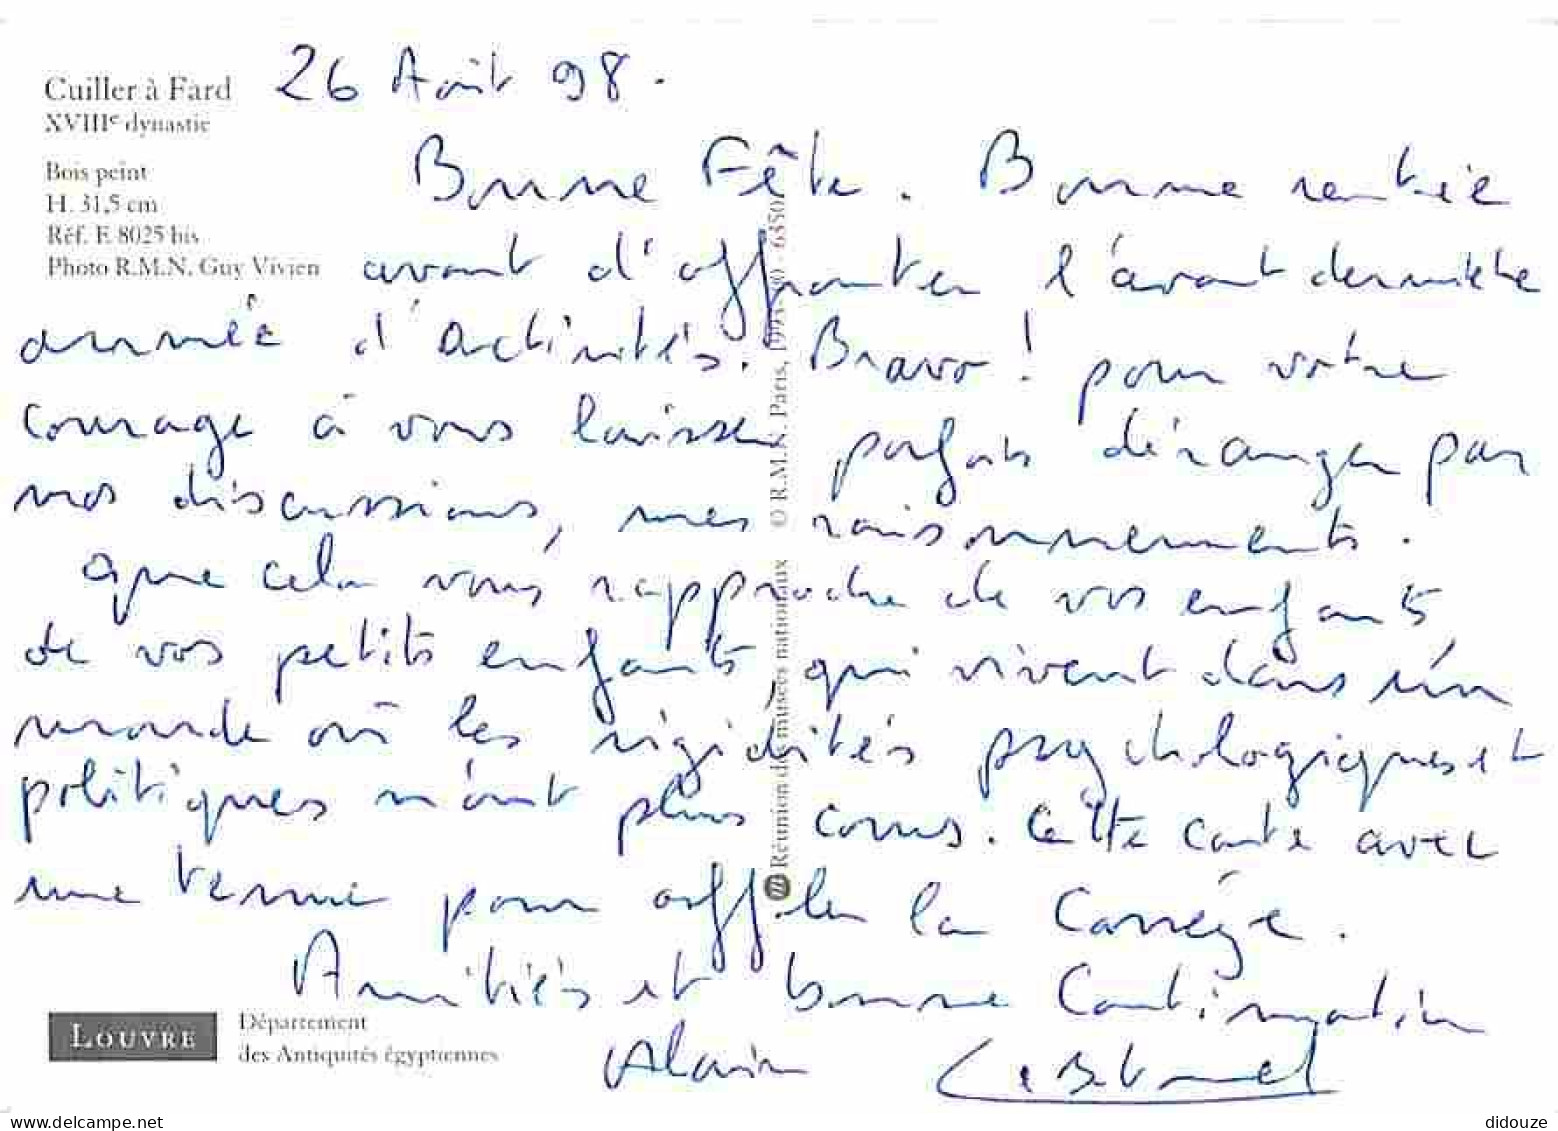 Cuiller à Fard
XVIIIe dynastie
Bois peint
H. 31,5 cm
Réf. E 8025 bis
Photo R.M.N. Guy Vivien
26 Août 98.
Bonne Fête. Bonne rentrée
avant d'affronter l'avant dernière
année d'activités. Bravo ! pour votre
courage à vous laisser parfois déranger par
nos discussions, mes raisonnements.
Que cela vous rapproche de vos enfants
de vos petits enfants, qui vivent dans un
monde où les rigidités psychologiques et
politiques n'ont plus cours. Cette carte avec
une femme pour la
Amitiés et bonne Continuation
Alain
© R.M.N. Paris, 1993
Réunion des musées nationaux
LOUVRE
Département
des Antiquités égyptiennes
www.delcampe.net
didouze